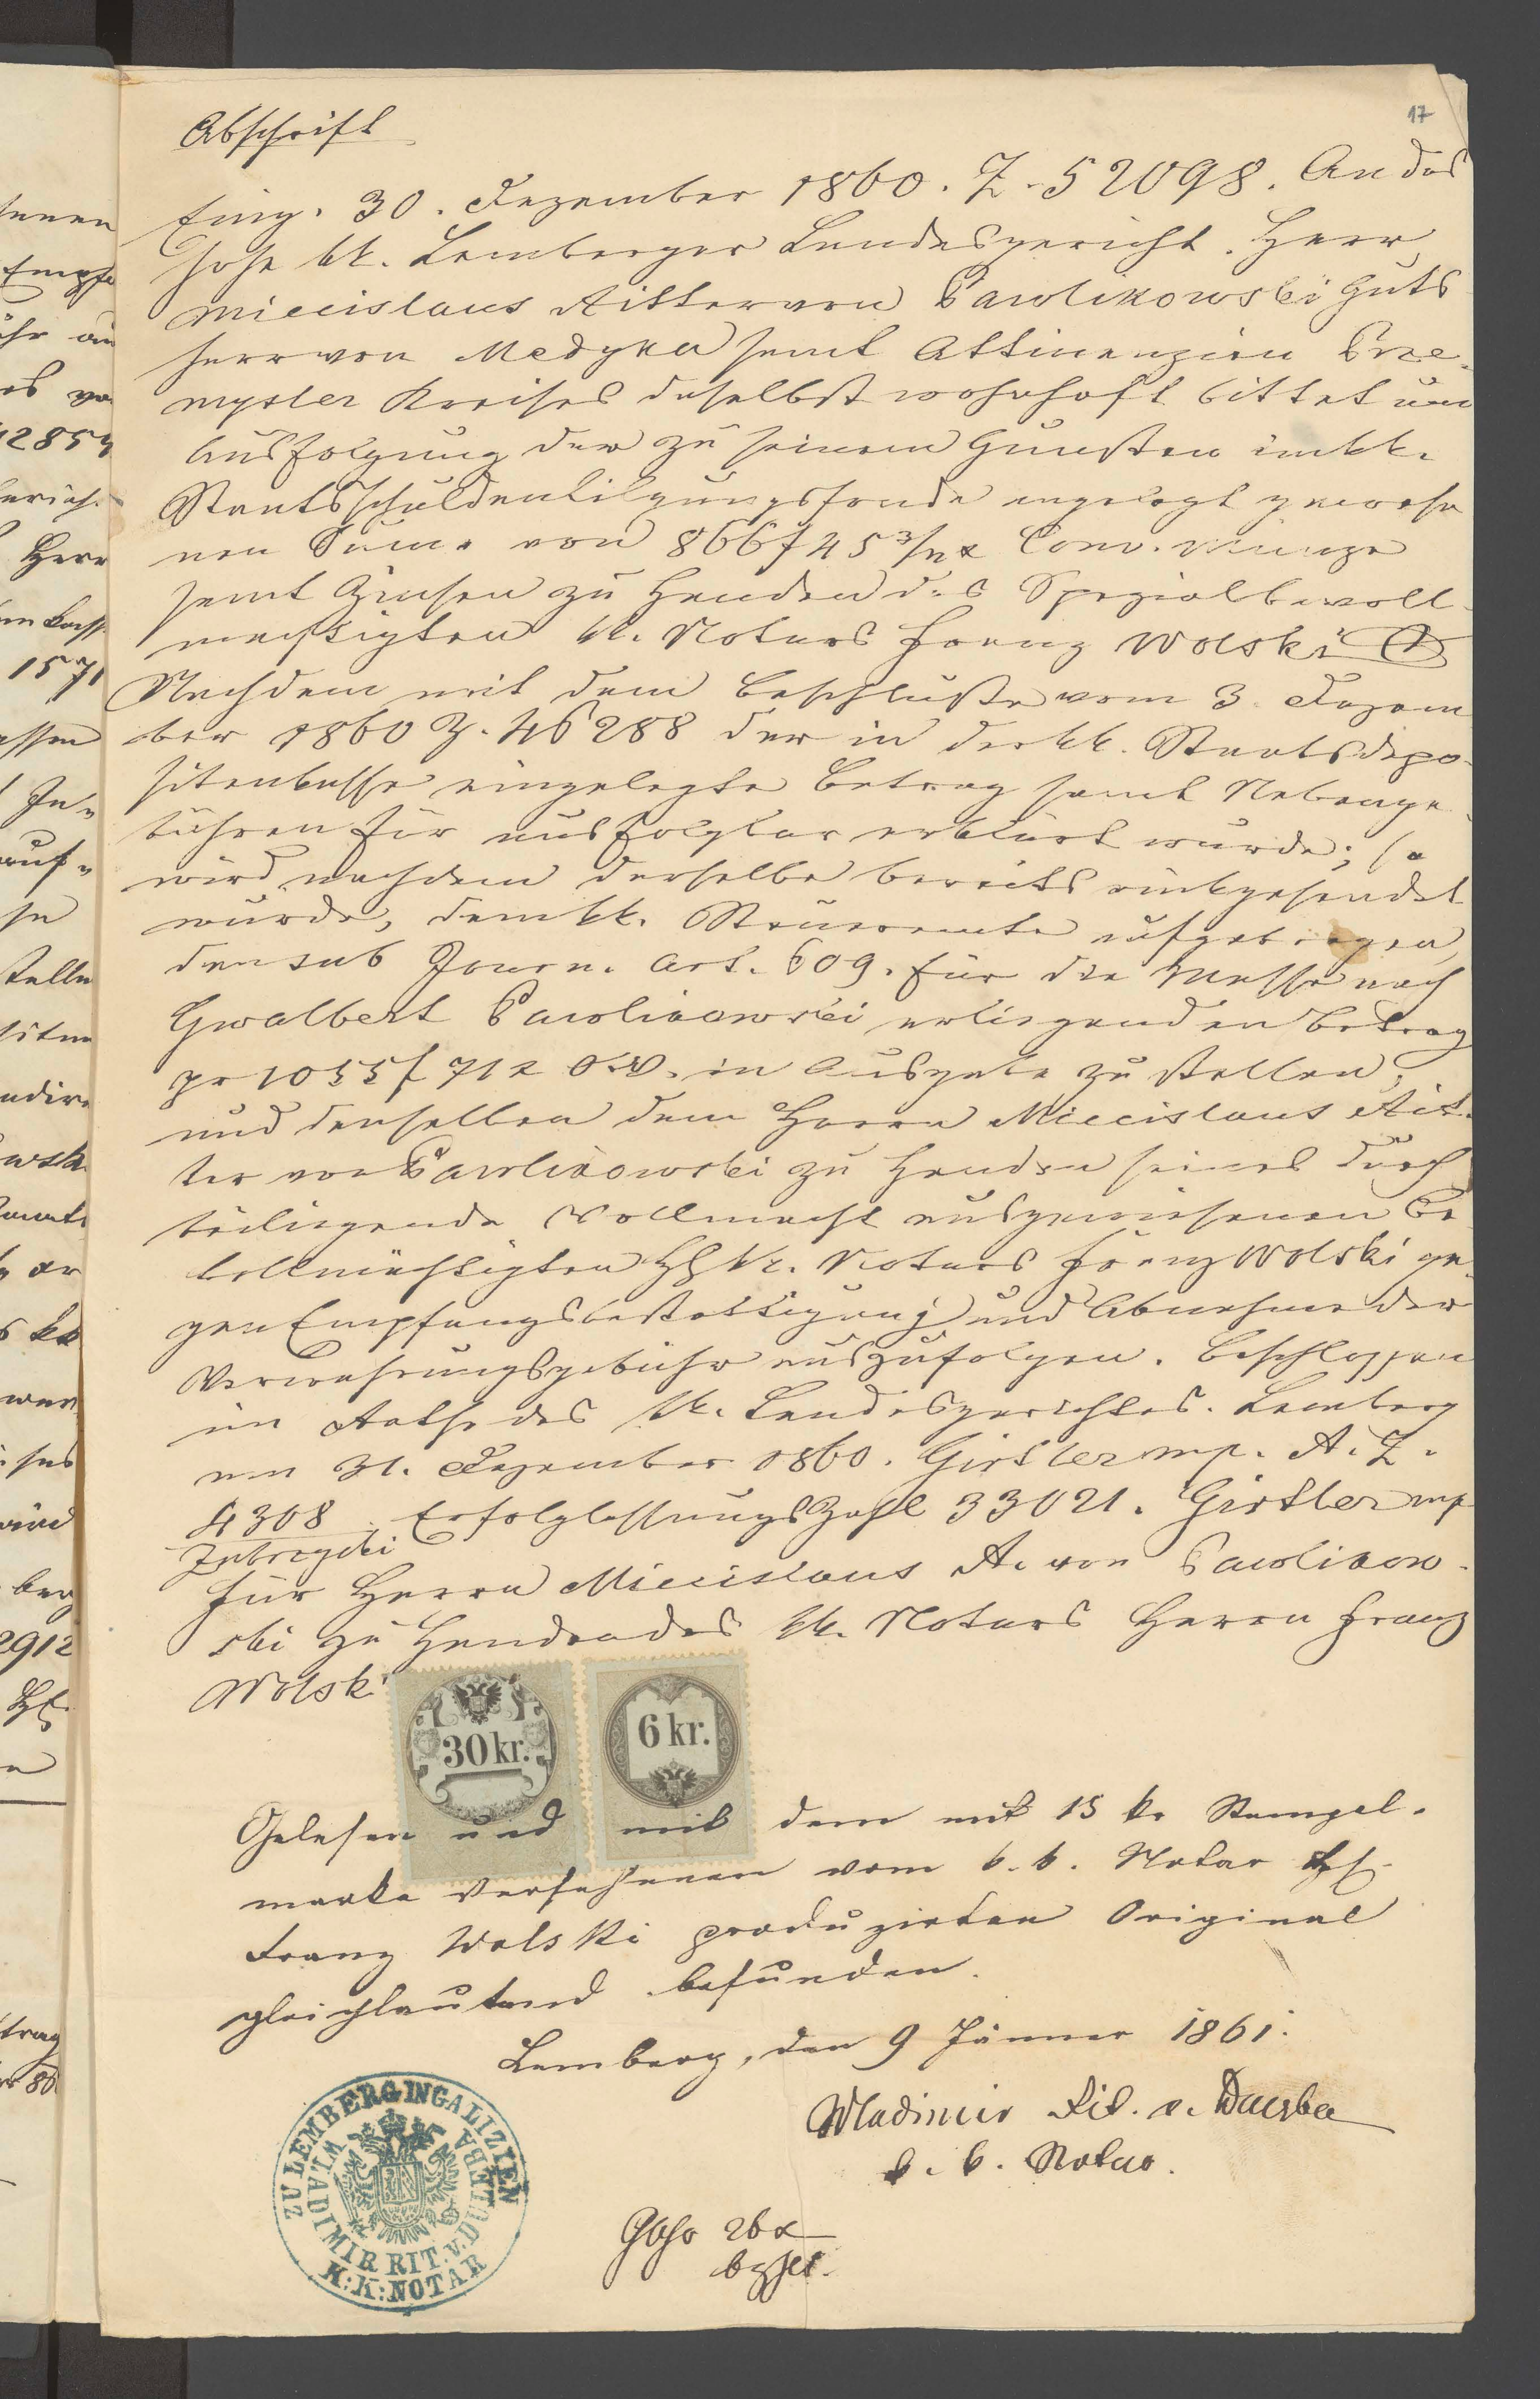 17
Abschrift
Eing. 30. Dezember 1860. Z. 52098. An das
hohe kk. Lemberger Landesgericht. Herr
Miecislaus Ritter von Pawlikowski Guts
herr von Medyka samt Attinenzien Prze-
mysler Kreises daselbst wohnhaft bittet um
Ausfolgung der zu seinem Gunsten im kk.
Staatsschuldentilgungsfonde angelegt gewese
nen Summe von 866 f 45 3/4 x Conv. Münze
samt Zinsen zu Handen des Spezialbevoll-
mächtigten kk. Notars Franz Wolski
Nachdem mit dem Beschluße vom 3. Dezem
ber 1860 Z. 46288 der in der kk. Staatsdepo-
sitenkasse eingelegte Betrag samt Nebenge-
bühren für ausfolgbar erklärt wurde; so
wird nachdem derselbe bereits eingesendet
wurde, dem kk. Steueramte aufgetragen,
den sub Journ. Art. 609. für die Masse nach
Gwalbert Pawlikowski erliegenden Betrag
pr 1055 f 71 x ö.W. in Ausgabe zu stellen,
und denselben dem Herrn Miecislaus Rit-
ter von Pawlikowski zu Handen seines durch
beiliegende Vollmacht ausgewiesenen Be-
vollmächtigten H kk. Notars Franz Wolski ge-
gen Empfangsbestättigung und Abnahme der
Verwahrungsgebühr auszufolgen. Beschlossen
im Rathe des kk. Landesgerichtes. Lemberg
am 31. Dezember 1860. Girtler mp. R. Z.
4308. Erfolglassungs Zahl 33021. Girtler mp
für Herrn Miecislaus R. von Pawlikow-
ski zu Handen des kk. Notars Herrn Franz
Wolski
30 kr. 6 kr.
Gelesen und mit dem mit 15 kr Stempel-
marke versehenen vom k. k. Notar H
Franz Wolski produzirten Original
gleichlautend befunden.
Lemberg, den 9 Jänner 1861.
Wladimir Rit. v. Duleba
k. k. Notar.
ZU LEMBERG IN GALIZIEN
WLADIMIR RIT. V. DULEBA
K: K: NOTAR